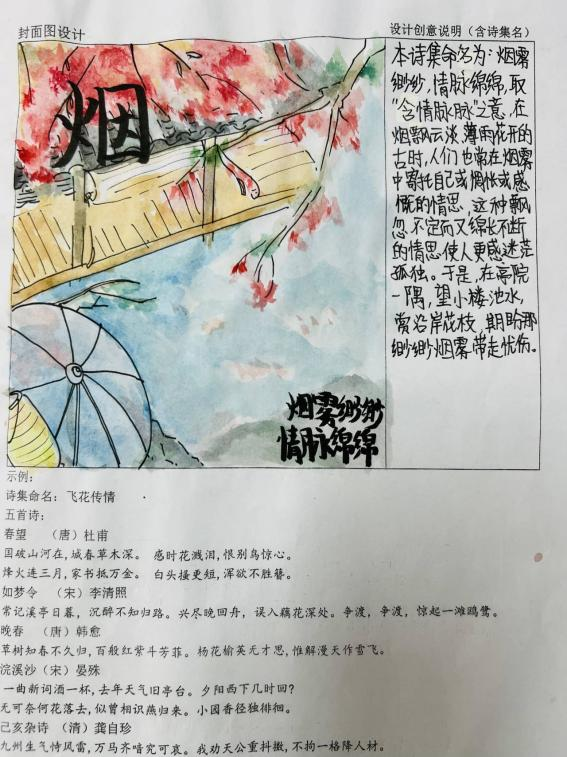 封面图设计
设计创意说明（含诗集名）
烟
烟雾缈缈
情脉绵绵
本诗集命名为：烟雾
缈缈，情脉绵绵，取
“含情脉脉”之意，在
烟飘云淡，薄雨花开的
古时，人们也常在烟雾
中寄托自己或惆怅或感
慨的情思，这种飘
忽不定而又绵长不断
的情思使人更感迷茫
孤独。于是，在高院
一隅，望小楼池水，
赏沿岸花枝，期盼那
缈缈烟雾带走忧伤。
示例：
诗集命名：飞花传情
五首诗：
春望 （唐）杜甫
国破山河在，城春草木深。 感时花溅泪，恨别鸟惊心。
烽火连三月，家书抵万金。 白头搔更短，浑欲不胜簪。
如梦令 （宋）李清照
常记溪亭日暮， 沉醉不知归路。兴尽晚回舟， 误入藕花深处。争渡，争渡，惊起一滩鸥鹭。
晚春 （唐）韩愈
草树知春不久归，百般红紫斗芳菲。杨花榆荚无才思，惟解漫天作雪飞。
浣溪沙（宋）晏殊
一曲新词酒一杯，去年天气旧亭台。夕阳西下几时回？
无可奈何花落去，似曾相识燕归来。小园香径独徘徊。
己亥杂诗 （清）龚自珍
九州生气恃风雷，万马齐喑究可哀。我劝天公重抖擞，不拘一格降人材。